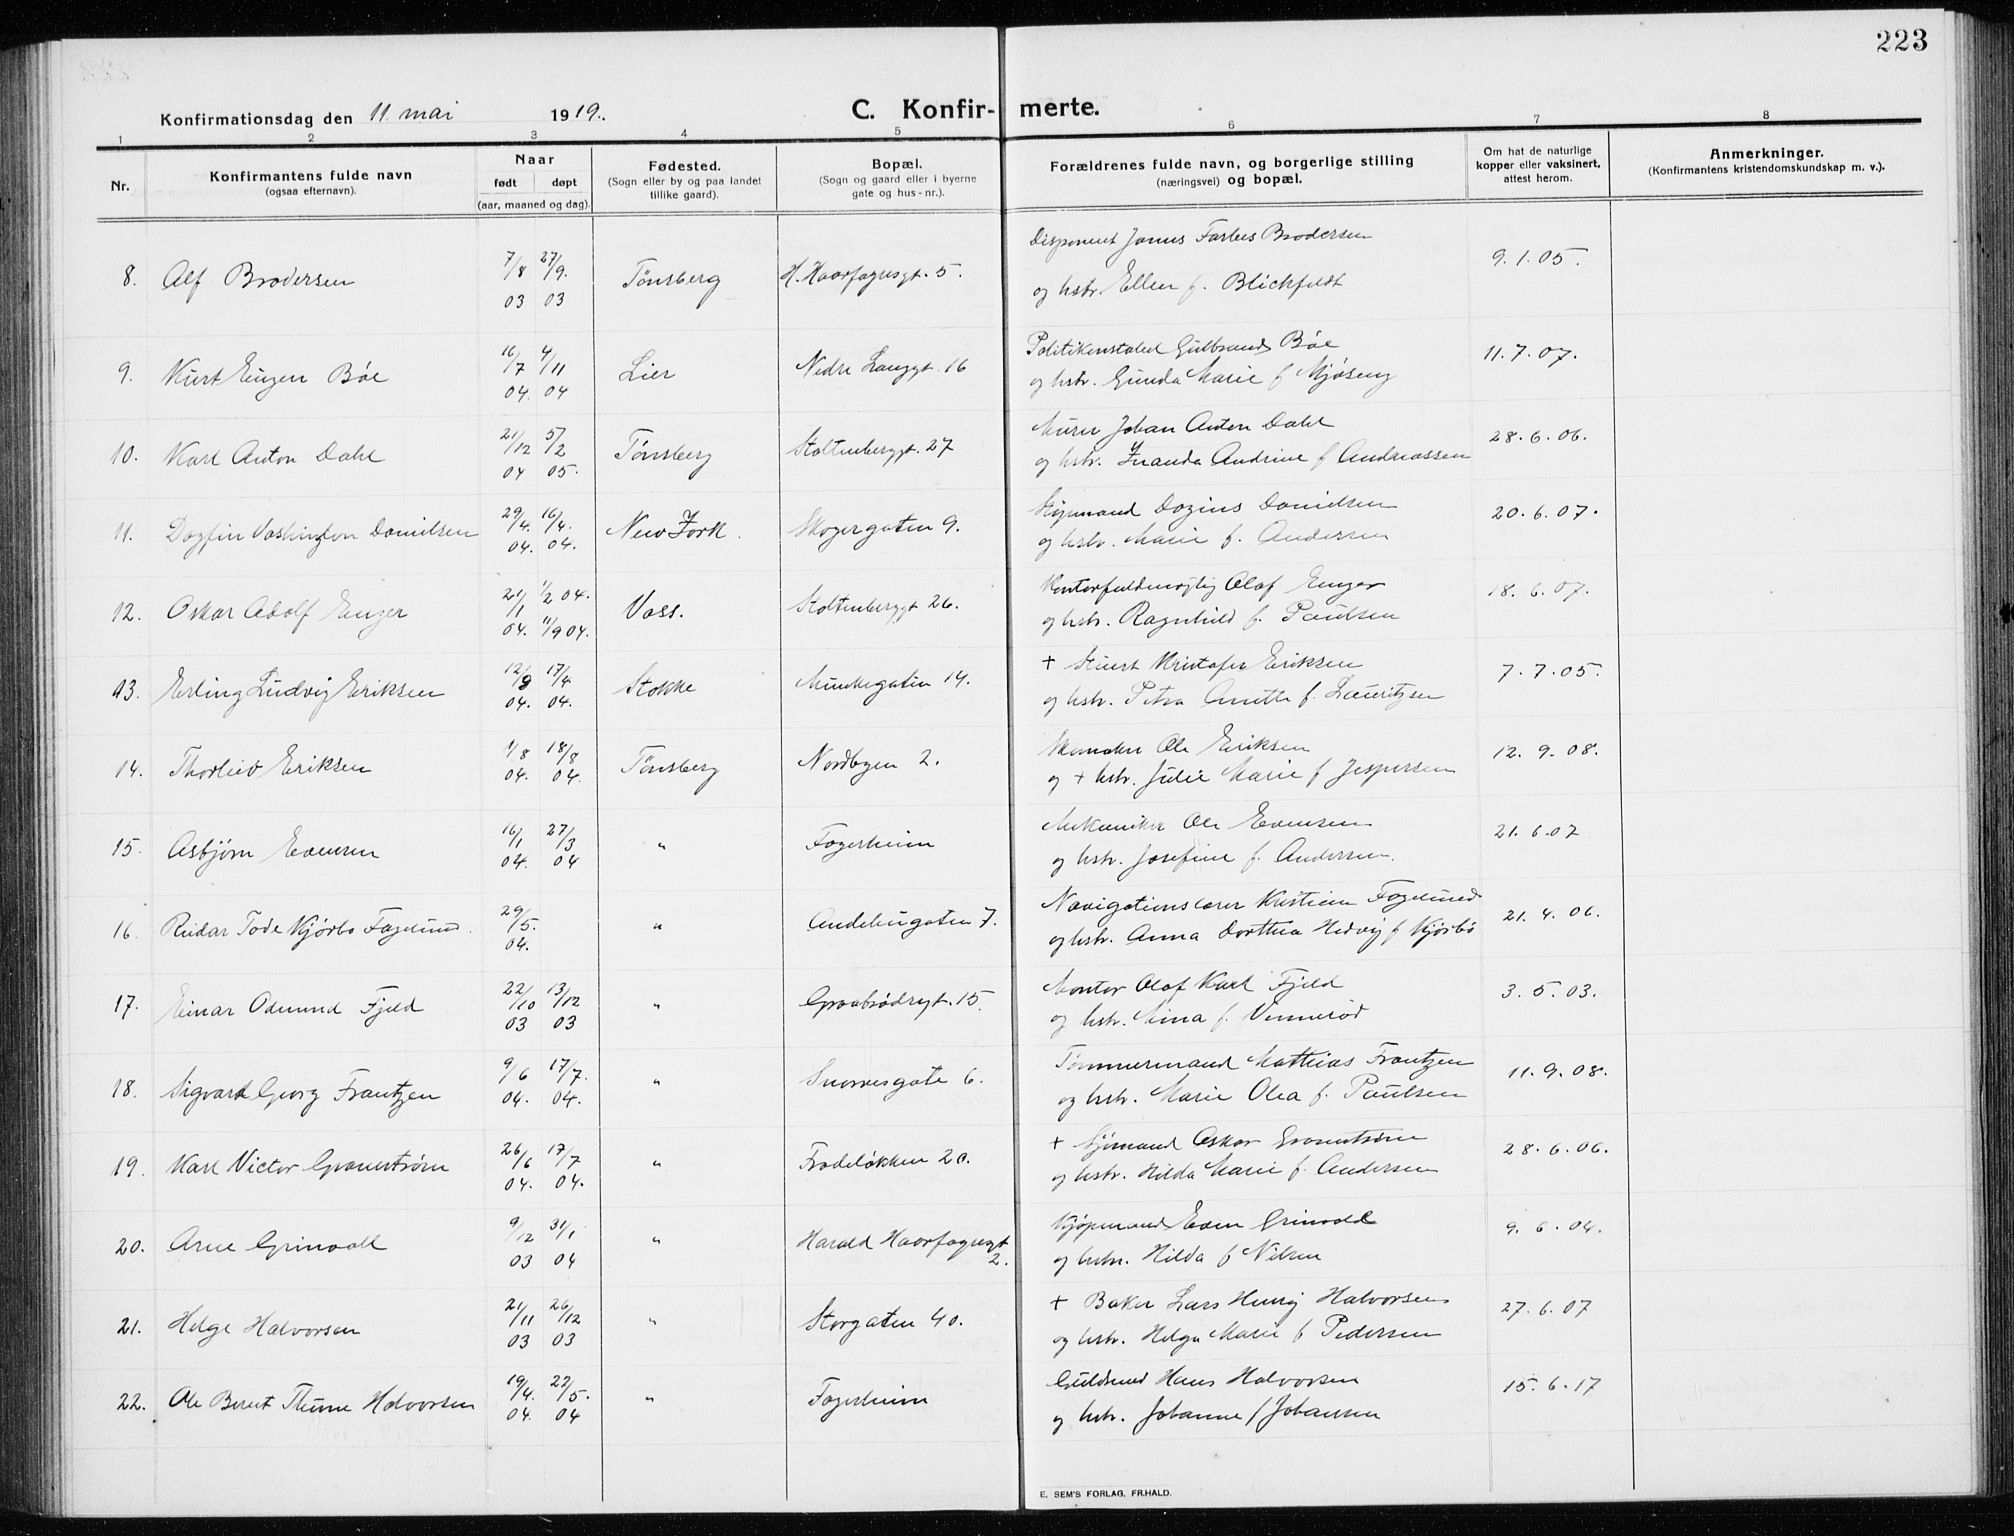 223
Konfirmationsdag den 11. mai 1919.
C. Konfir- merte.
1 2 3 4 5 6 7 8
Nr.
Konfirmantens fulde navn
(ogsaa efternavn).
Naar
født døpt
(aar, maaned og dag).
Fødested.
(Sogn eller by og paa landet
tillike gaard).
Bopæl.
(Sogn og gaard eller i byerne
gate og hus-nr.).
Forældrenes fulde navn, og borgerlige stilling
(næringsvei) og bopæl.
Om hat de naturlige
kopper eller vaksinert,
attest herom.
Anmerkninger.
(Konfirmantens kristendomskundskap m. v.).
8. Alf Brodersen 7/8 03 27/9. 03 Tønsberg H. Haarfagresgt. 5.
Disponent Janus Forbes Brodersen
og hstr. Ellen f. Blickfeldt
9. 1. 05.
9. Kurt Eugen Bøe 16/7 04. 4/11 04 Lier Nedre Langgt. 16
Politikonstabel Gulbrand Bøe
og hstr. Gunda Marie f. Mjøseng
11. 7. 07.
10. Karl Anton Dahl 21/12 04 5/2 05. Tønsberg Stoltenberggt. 27
Murer Johan Anton Dahl
og hstr. Inanda Andrine f Andreassen
28. 6. 06.
11. Dagfin Vashington Danielsen 29/4. 04. 16/4. 04. New York. Skogergaten 9.
Styrmand Dagius Danielsen
og hstr. Marie f. Andersen
20. 6. 07.
12. Oskar Adolf Enger 21/1 04. 1/2 04. 11/9 04. Voss. Stoltenberggt 26.
Kontorfuldmægtig Olaf Enger
og hstr. Ragnhild f. Paulsen
18. 6. 07.
13. Erling Ludvig Eriksen 04. 17/4 04. Stokke Munkegaten 14.
+ Stuert Kristofer Eriksen
og hstr. Petra Anette f. Lauritzen
7. 7. 05.
14. Thorleiv Eriksen 1/8 04. 18/8 04. Tønsberg Nordbyen 2.
Skomaker Ole Eriksen
og + hstr. Julie Marie f Jespersen
12. 9. 08.
15. Asbjørn Evensen 16/1 04. 27/3 04 " Fagerheim
Mekaniker Ole Evensen
og hstr. Josefine f. Andersen.
21. 6. 07
16. Reidar Tode Kjørbo Fagelund. 29/5. 04. " Andebugaten 7.
Navigationslærer Kristian Fagelund
og hstr. Anna Dorthea Hedvig f Kjørbo
21. 4. 06.
17. Einar Odmund Fjeld 22/10 03 13/12 03 " Graabrødregt. 15.
Montør Olaf Karl Fjeld
og hstr. Mina f. Vennerød
3. 5. 03.
18. Sigvard Georg Frantzen 9/6 04. 17/7. 04. " Snorresgate 6.
Tømmermand Mathias Frantzen
og hstr. Marie Olea f. Paulsen
11. 9. 08.
19. Karl Victor Granstrøm 26/6 04. 17/7 04. " Frodeløkken 20.
+ Sjømand Oskar Granstrøm
og hstr. Hilda Marie f. Andersen
28. 6. 06.
20. Arne Grinvold 9/12 03 31/1 04 " Harald Haarfagresgt 2.
Kjøpmand Even Grinvold
og hstr. Hilda f Nilsen
9. 6. 04.
21. Helge Halvorsen 21/11 03 26/12 03 " Storgaten 40.
+ Baker Lars Henrij Halvorsen
og hstr. Helga Marie f Pedersen
27. 6. 07
22. Ole Bernt Thune Halvorsen 19/4. 04. 22/5. 04 " Fagerheim
Guldsmed Hans Halvorsen
og hstr. Johanne f Johansen
15. 6. 17
E. SEM'S FORLAG, FR.HALD.